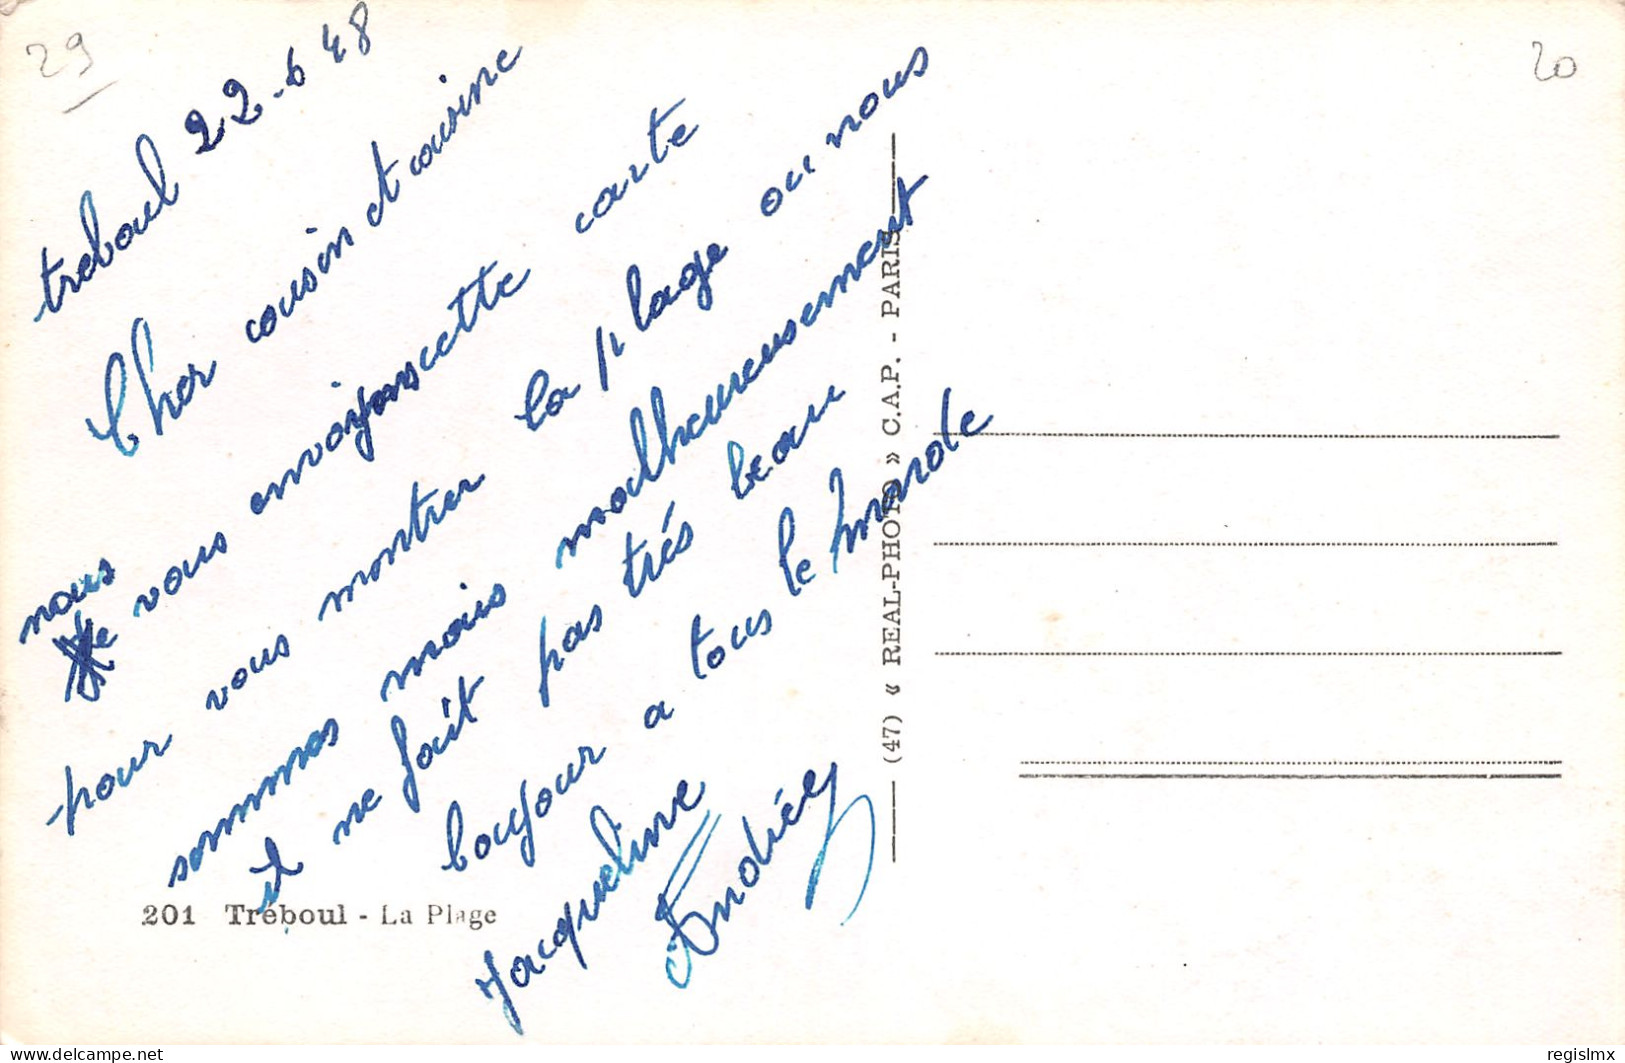 29
20
treboul 22-6 48
Cher cousin et cousine
nous
vous envoyons cette carte
pour vous montrer la plage ou nous
sommes mais malheureusement
il ne fait pas trés beau
boujour a tous le monde
Jacqueline
Andrée
201 Tréboul - La Plage
(47) « REAL-PHOTO » C.A.P. - PARIS
delcampe.net
regislmx